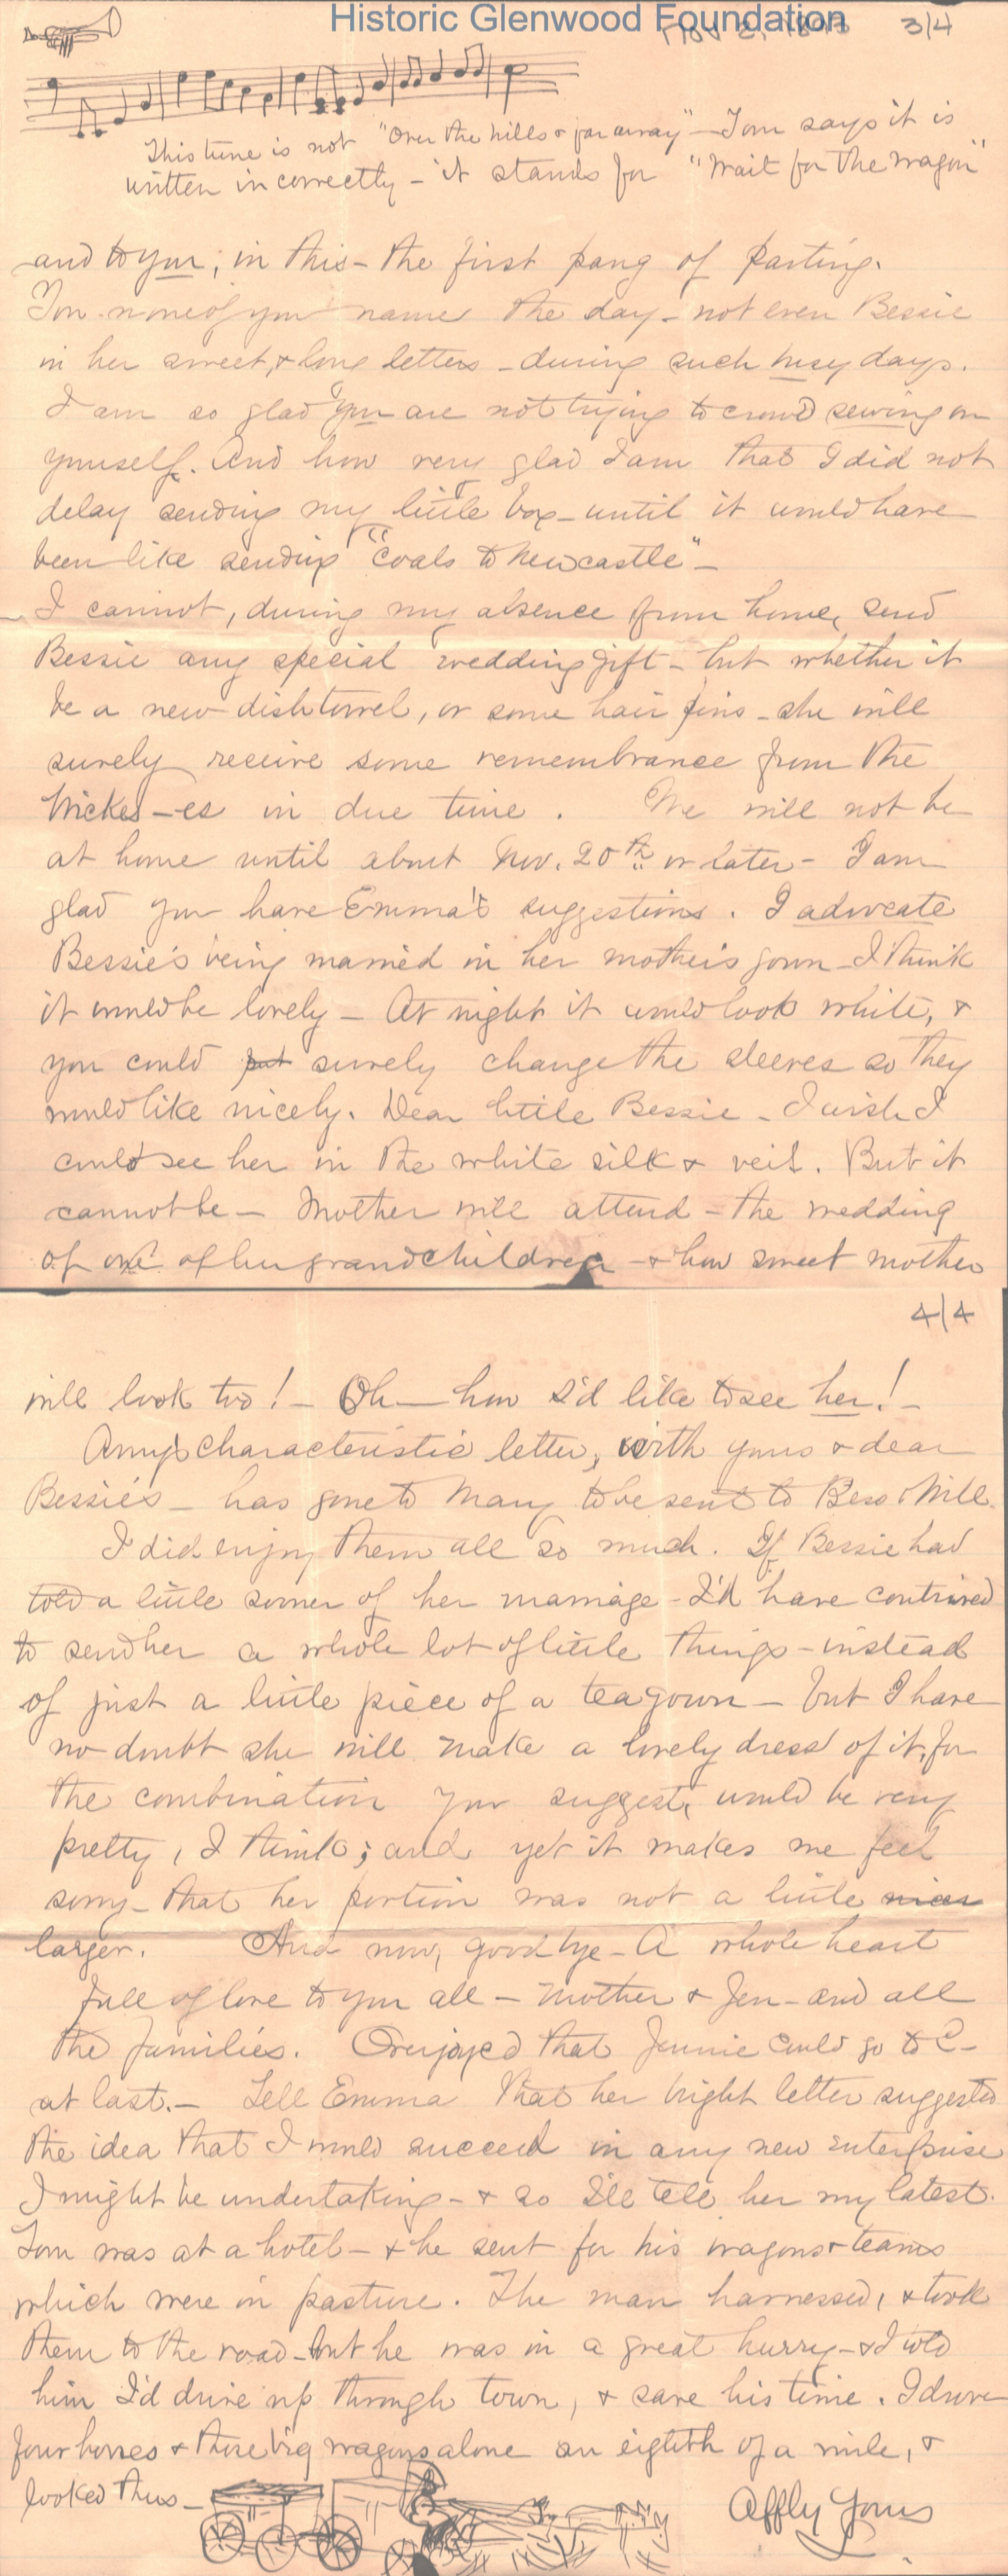 Historic Glenwood Foundation
Nov 2, 1893 3/4
This tune is not "Over the hills & far away" - Tom says it is
written incorrectly - it stands for "Wait for the wagon"
and to you; in this - the first pang of parting.
You none of you name the day - not even Bessie
in her sweet, & long letters - during such busy days.
I am so glad you are not trying to crowd sewing on
yourself. And how very glad I am that I did not
delay sending my little box - until it would have
been like sending "Coals to Newcastle" -
I cannot, during my absence from home, send
Bessie any special wedding gift - but whether it
be a new dishtowel, or some hair pins - she will
surely receive some remembrance from the
Wickes-es in due time. We will not be
at home until about Nov. 20th or later - I am
glad you have Emma's suggestions. I advocate
Bessie's being married in her mother's gown - I think
it would be lovely - At night it would look white, &
you could put surely change the sleeves so they
would like nicely. Dear little Bessie - I wish I
could see her in the white silk & veil. But it
cannot be - Mother will attend - the wedding
of one of her grandchildren - & how sweet mother
4/4
will look too! - Oh - how I'd like to see her! -
Amy's characteristic letter, with yours & dear
Bessie's - has gone to Mary to be sent to Bess & Will.
I did enjoy them all so much. If Bessie had
told a little sooner of her marriage - I'd have contrived
to send her a whole lot of little things - instead
of just a little piece of a teagown - but I have
no doubt she will make a lovely dress of it, for
the combination you suggest, would be very
pretty, I think; and yet it makes me feel
sorry - that her portion was not a little
larger. And now, good bye - A whole heart
full of love to you all - Mother & Jen - and all
the families. Overjoyed that Jennie could go to C-
at last. - Tell Emma that her bright letter suggested
the idea that I would succeed in any new enterprise
I might be undertaking - & so I'll tell her my latest.
Tom was at a hotel - & he sent for his wagons & teams
which were in pasture. The man harnessed, & took
them to the road - but he was in a great hurry - & I told
him I'd drive up through town, & save his time. I drove
four horses & three big wagons alone an eighth of a mile, &
looked thus -
Affly Yours